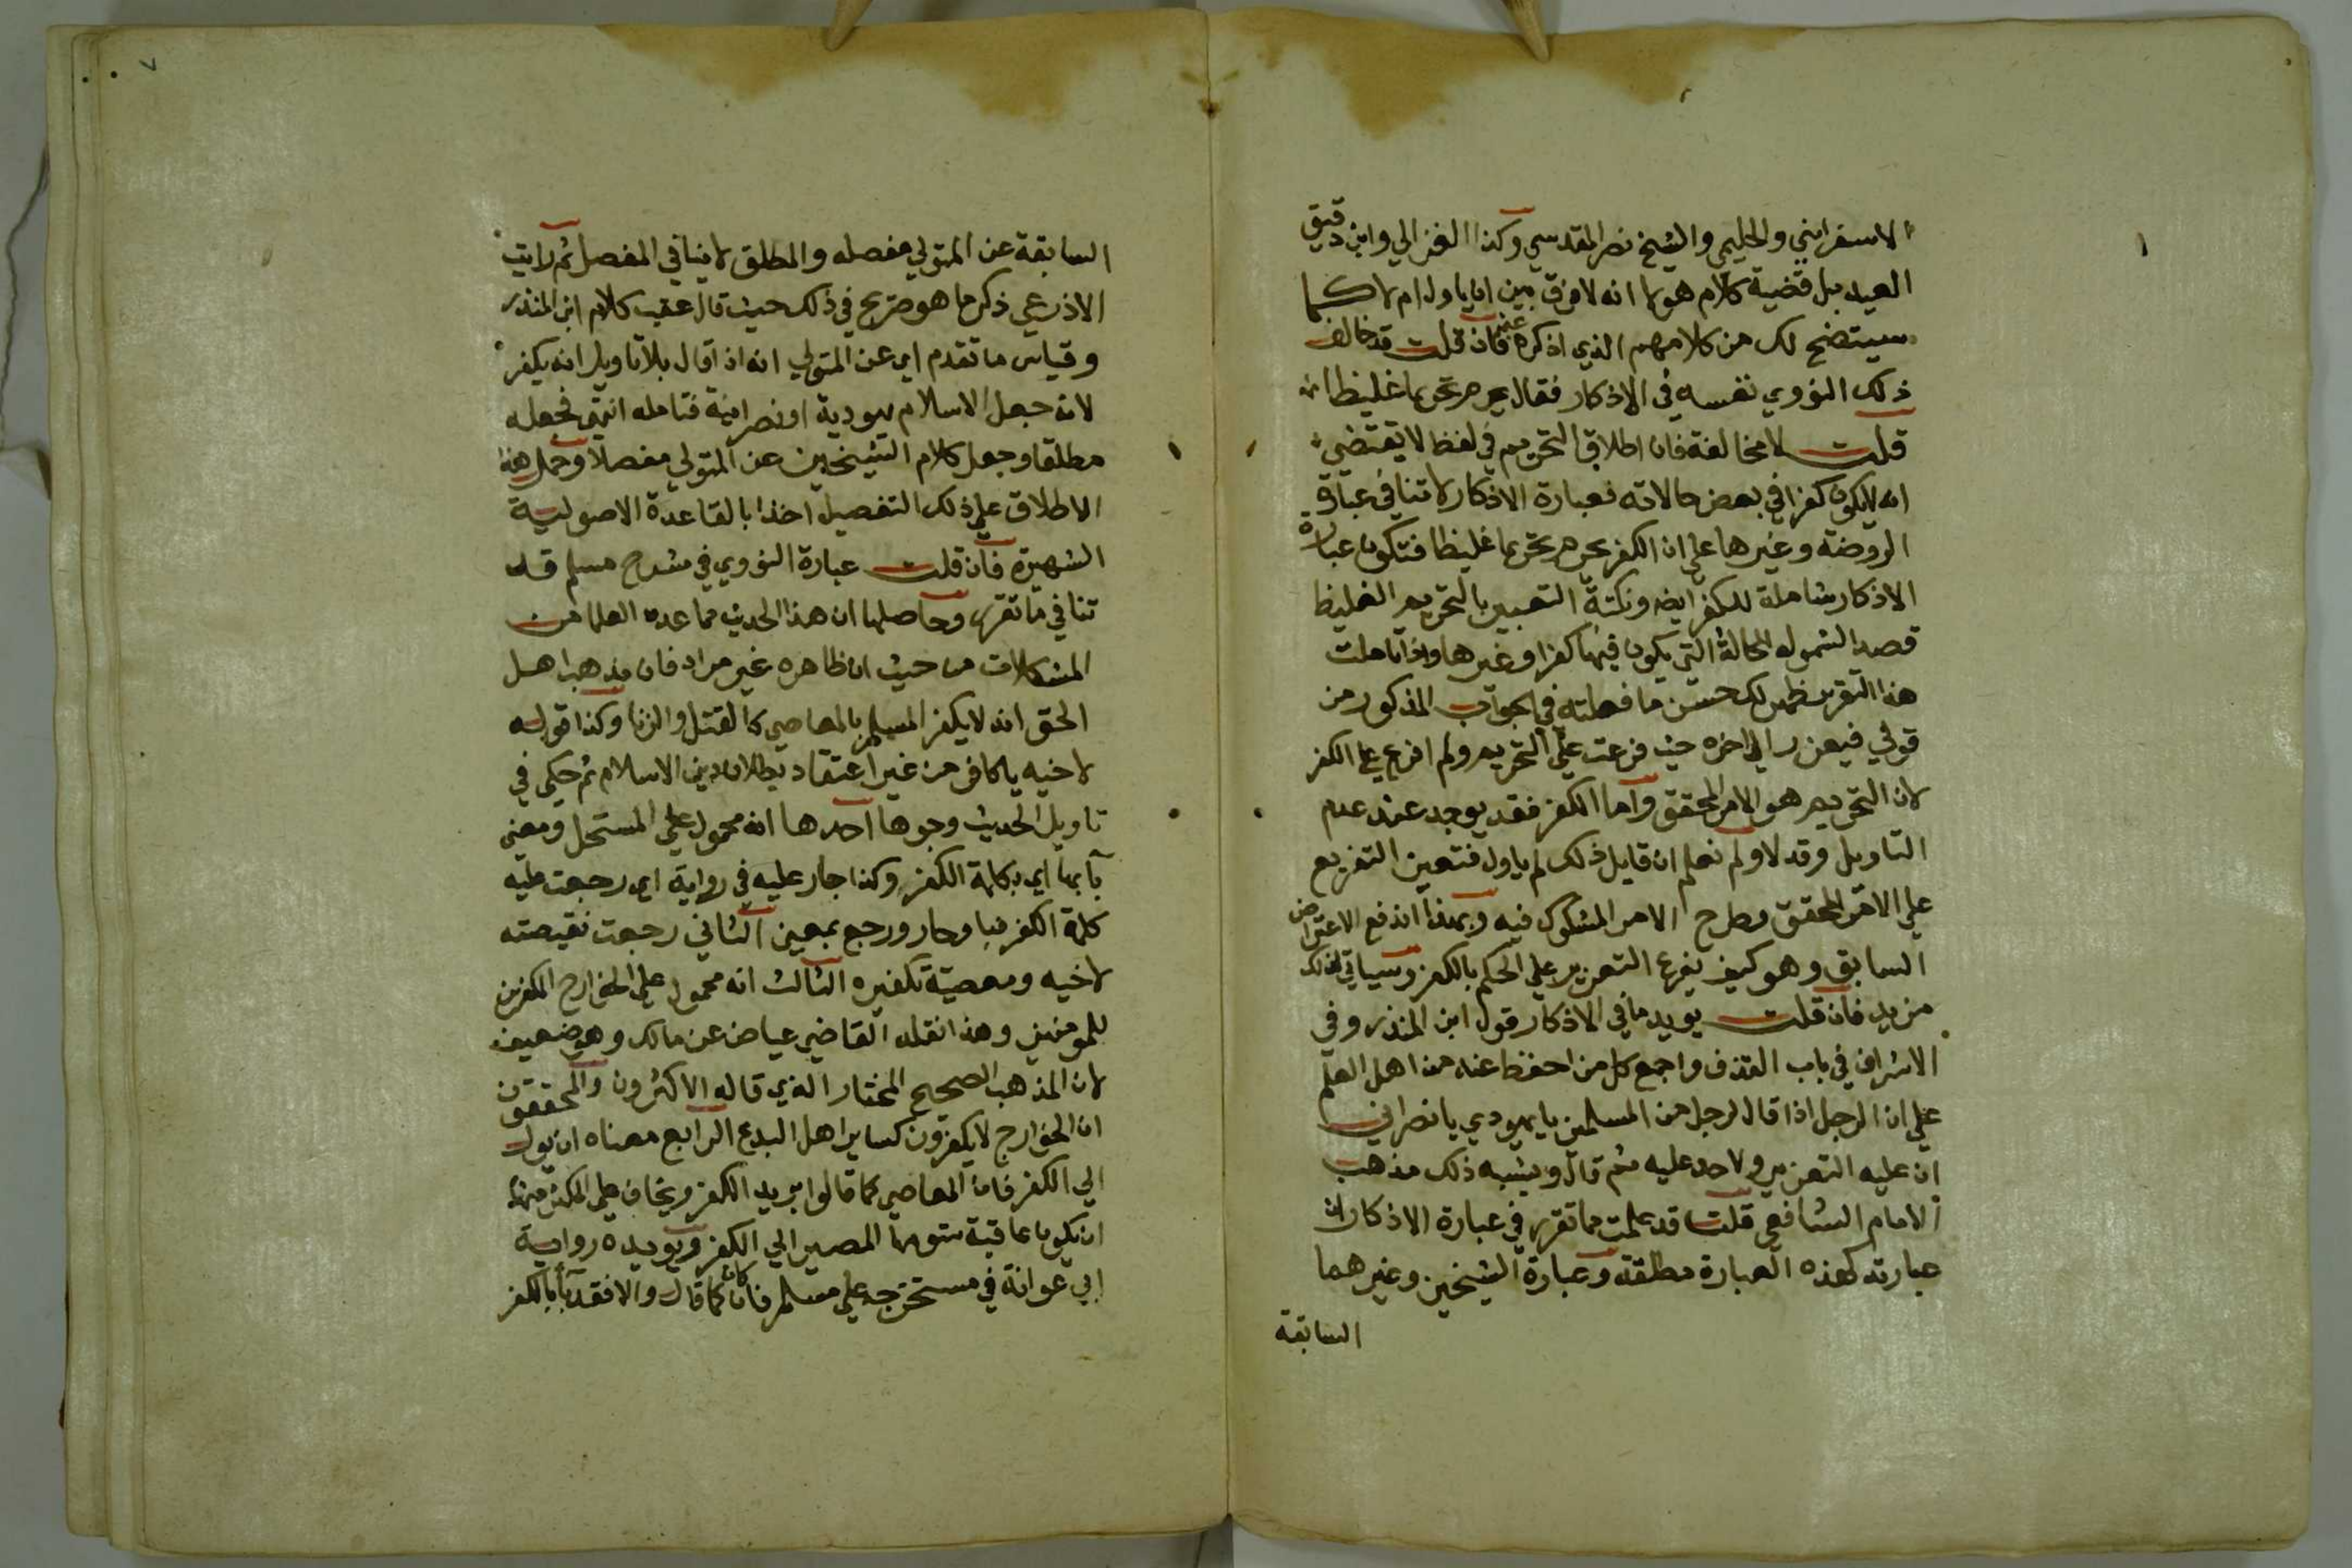 الاسفرايني والحليمي والشيخ نصر المقدسي وكذا الغزالي وابن دقيق
العيد بل قضية كلام هولا انه لا فرق بين ان ياول ام لا كما
سيتضح لك من كلامهم الذي اذكره عنهم فان قلت قد خالف
ذلك النووي نفسه في الاذكار فقال يحرم تحريما غليظا
قلت لا مخالفة فان اطلاق التحريم في لفظ لا يقتضي
انه لا يكون كفرا في بعض حالاته فعبارة الاذكار لا تنافي عبارة
الروضة وغيرها علي ان الكفر يحرم تحريما غليظا فتكون عبارة
الاذكار شاملة للكفر ايضا ونكتة التعبير بالتحريم الغليظ
قصد الشمول للحالة التي يكون فيها كفرا وغيرها واذا تاملت
هذا التقرير ظهر لك حسن ما فعلته في الجواب المذكور من
قولي فيعزر الي اخره حيث فرعت علي التحريم ولم افرع علي الكفر
لان التحريم هو الامر المحقق واما الكفر فقد يوجد عند عدم
التاويل وقد لا ولم نعلم ان قايل ذلك لم ياول فتعين التفريع
علي الامر المحقق وطرح الامر المشكوك فيه وبهذا اندفع الاعتراض
السابق وهو كيف يفرع التعزير علي الحكم بالكفر وسياتي لذلك
مزيد فان قلت يويد ما في الاذكار قول ابن المنذر وفي
الاشراف في باب القذف واجمع كل من احفظ عنه من اهل العلم
علي ان الرجل اذا قال لرجل من المسلمين يا يهودي يا نصراني
ان عليه التعزير ولا حد عليه ثم قال ويشبه ذلك مذهب
الامام الشافعي قلت قد علمت مما تقرر في عبارة الاذكار ان
عبارته كهذه العبارة مطلقة وعبارة الشيخين وغيرهما
السابقة
٧
السابقة عن المتولي مفصله والمطلق لا ينافي المفصل ثم رايت
الاذرعي ذكر ما هو صريح في ذلك حيث قال عقب كلام ابن المنذر
وقياس ما تقدم اي عن المتولي انه اذا قال بلا تاويل انه يكفر
لانه جعل الاسلام يهودية او نصرانية فتامله انتهي فجعله
مطلقا وجعل كلام الشيخين عن المتولي مفصلا وحمل هذا
الاطلاق علي ذلك التفصيل اخذا بالقاعدة الاصولية
الشهيرة فان قلت عبارة النووي في شرح مسلم قد
تنافي ما تقرر وحاصلها ان هذا الحديث مما عده العلما من
المشكلات من حيث ان ظاهره غير مراد فان مذهب اهل
الحق انه لا يكفر المسلم بالمعاصي كالقتل والزنا وكذا قوله
لاخيه يا كافر من غير اعتقاد بطلان دين الاسلام ثم حكي في
تاويل الحديث وجوها احدها انه محمول علي المستحل ومعني
بآ بها اي بكلمة الكفر وكذا حار عليه في رواية اي رجعت عليه
كلمة الكفر فبا وحار ورجع بمعني الثاني رجعت نقيصته
لاخيه ومعصية تكفيره الثالث انه محمول علي الخوارج المكفرين
للمومنين وهذا نقله القاضي عياض عن مالك وهو ضعيف
لان المذهب الصحيح المختار الذي قاله الاكثرون والمحققون
ان الخوارج لا يكفرون كساير اهل البدع الرابع معناه ان يول
الي الكفر فان المعاصي كما قالوا بريد الكفر ويخاف علي المكثر منها
ان يكون عاقبة شومها المصير الي الكفر ويويده رواية
ابي عوانة في مستخرجه علي مسلم فان كان كما قال والا فقد بآ بالكفر